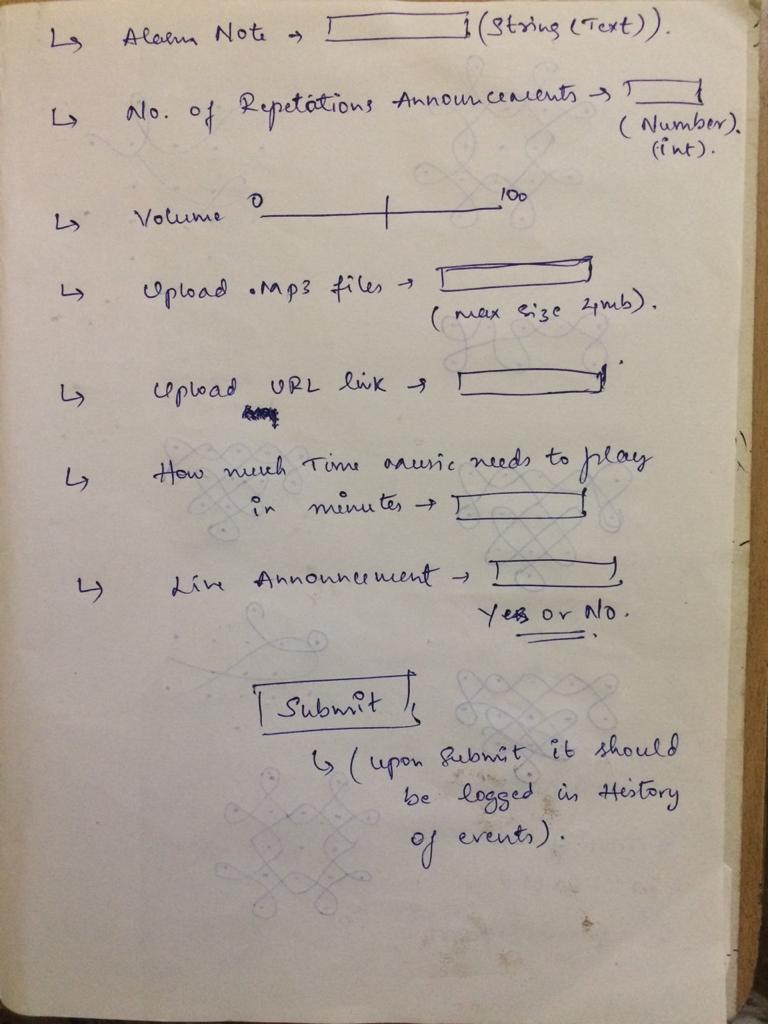 ↳ Alarm Note → (String (Text)).
↳ No. of Repetations Announcements →
(Number).
(int).
↳ Volume 0 100
↳ Upload .Mp3 files →
(max size 4mb).
↳ Upload URL link →
↳ How much Time music needs to play
in minutes →
↳ Live Announcement →
Yes or No.
Submit
↳ (upon Submit it should
be logged in History
of events).